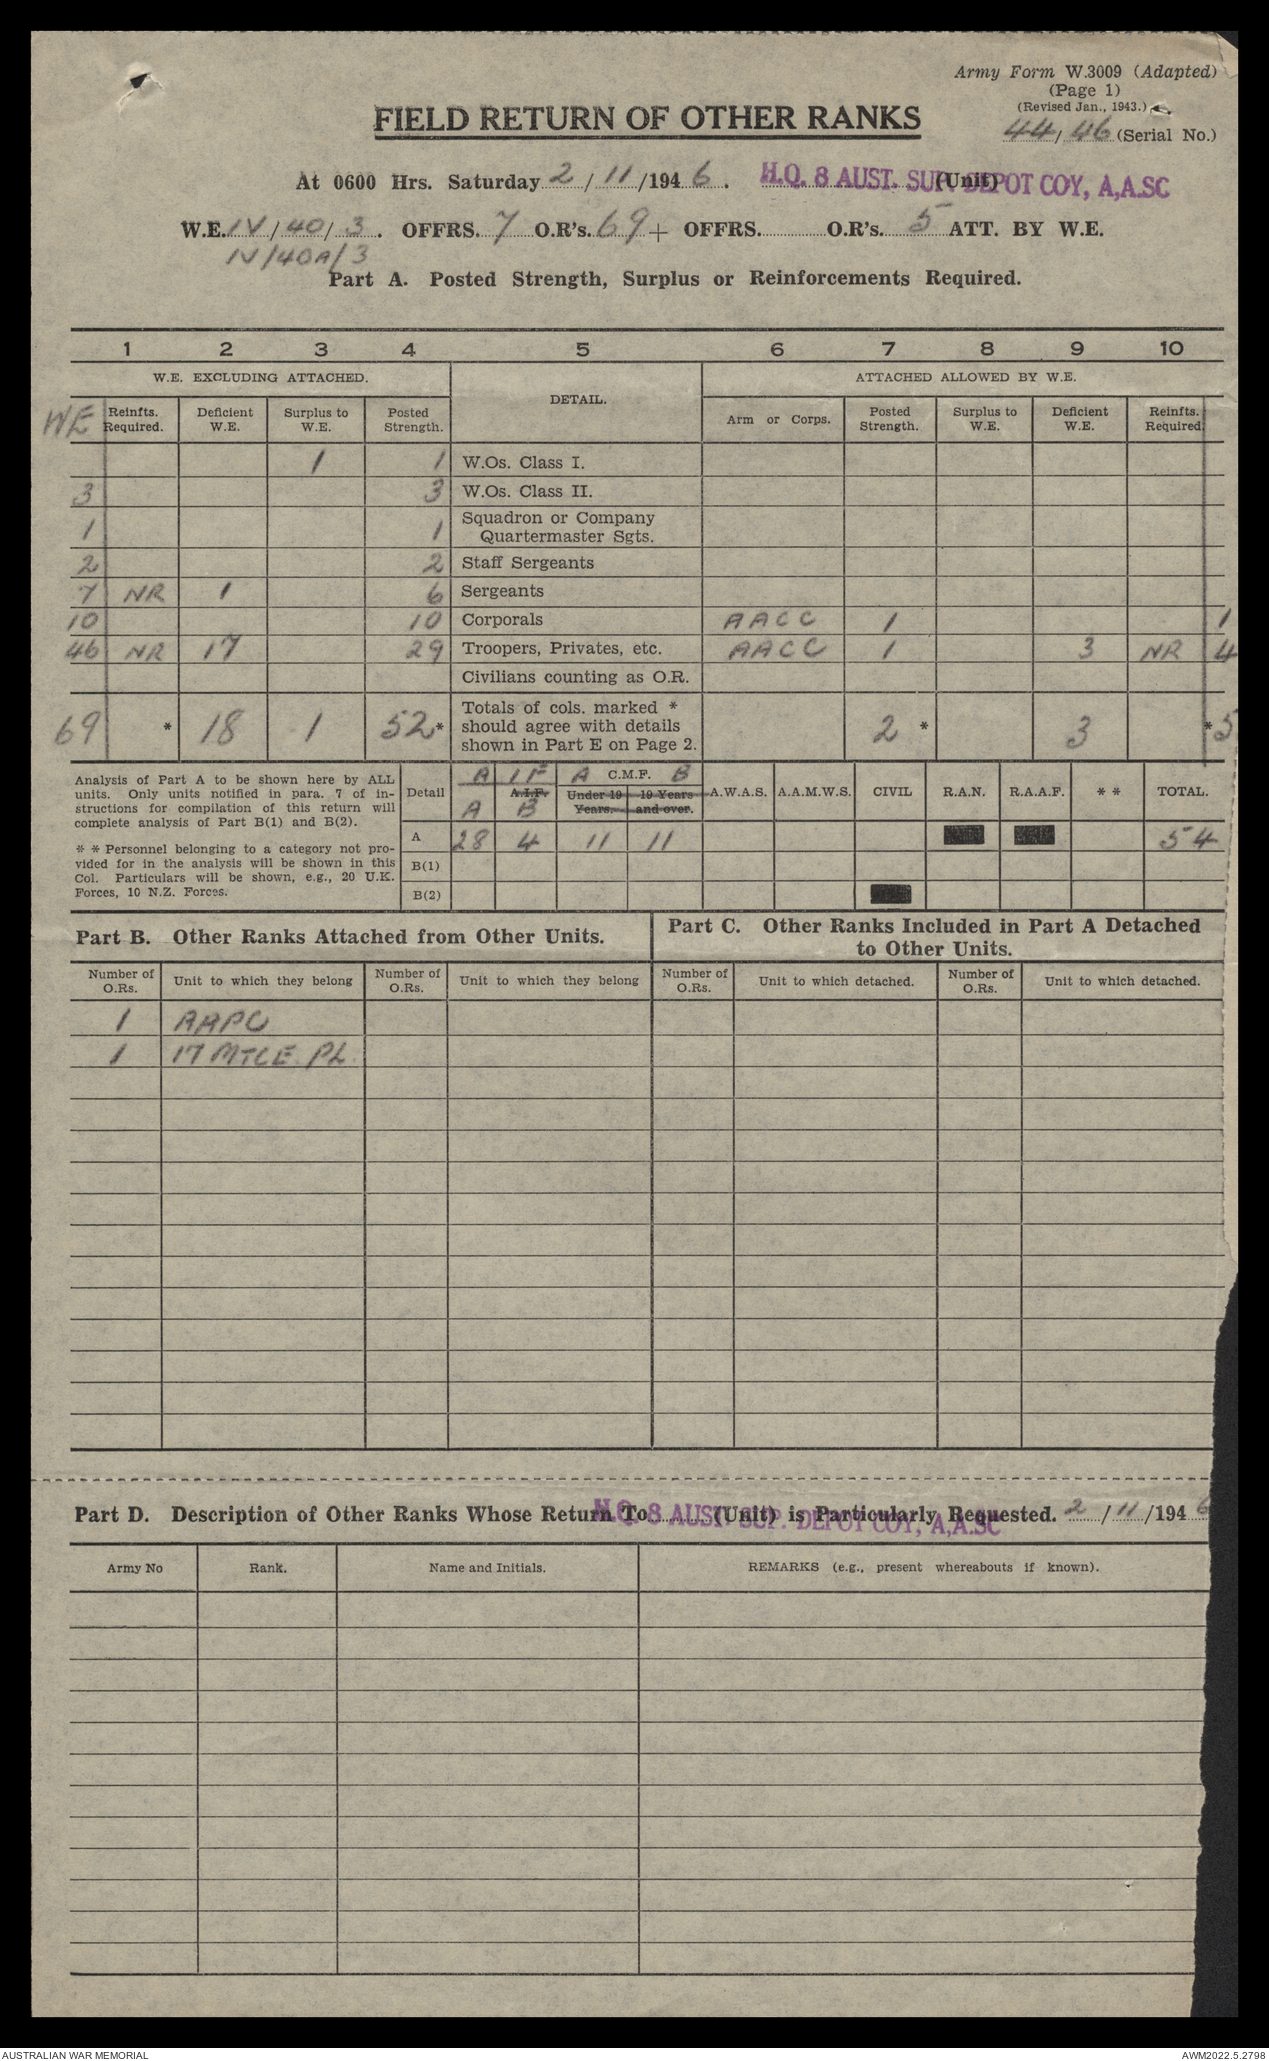 Army Form W.3009 (Adapted)
(Page 1)
(Revised Jan., 1943.)
44/46 (Serial No.)
FIELD RETURN OF OTHER RANKS
At 0600 Hrs. Saturday 2/11/1946. H.Q. 8 AUST. SUP. DEPOT COY, A,A.SC (Unit)
W.E. IV/40/3. OFFRS. 7 O.R's. 69 + OFFRS. O.R's. 5 ATT. BY W.E.
IV/40A/3
Part A. Posted Strength, Surplus or Reinforcements Required.
1 2 3 4 5 6 7 8 9 10
W.E. EXCLUDING ATTACHED. DETAIL. ATTACHED ALLOWED BY W.E.
WE Reinfts. Required. Deficient W.E. Surplus to W.E. Posted Strength. Arm or Corps. Posted Strength. Surplus to W.E. Deficient W.E. Reinfts. Required
1 1 W.Os. Class I.
3 3 W.Os. Class II.
1 1 Squadron or Company Quartermaster Sgts.
2 2 Staff Sergeants
7 NR 1 6 Sergeants
10 10 Corporals AACC 1 1
46 NR 17 29 Troopers, Privates, etc. AACC 1 3 NR 4
Civilians counting as O.R.
69 * 18 1 52* Totals of cols. marked * should agree with details shown in Part E on Page 2. 2 * 3 * 5
Analysis of Part A to be shown here by ALL
units. Only units notified in para. 7 of in-
structions for compilation of this return will
complete analysis of Part B(1) and B(2).
* * Personnel belonging to a category not pro-
vided for in the analysis will be shown in this
Col. Particulars will be shown, e.g., 20 U.K.
Forces, 10 N.Z. Forces.
Detail A IF A C.M.F. B
A.I.F. Under 19 Years. 19 Years and over. A.W.A.S. A.A.M.W.S. CIVIL R.A.N. R.A.A.F. * * TOTAL.
A B
A 28 4 11 11 54
B(1)
B(2)
Part B. Other Ranks Attached from Other Units.
Part C. Other Ranks Included in Part A Detached
to Other Units.
Number of O.Rs. Unit to which they belong Number of O.Rs. Unit to which they belong Number of O.Rs. Unit to which detached. Number of O.Rs. Unit to which detached.
1 AAPC
1 17 MTCE PL.
Part D. Description of Other Ranks Whose Return To H.Q. 8 AUST. SUP. DEPOT COY, A,A.SC (Unit) is Particularly Requested. 2/11/1946
Army No Rank. Name and Initials. REMARKS (e.g., present whereabouts if known).
AUSTRALIAN WAR MEMORIAL
AWM2022.5.2798